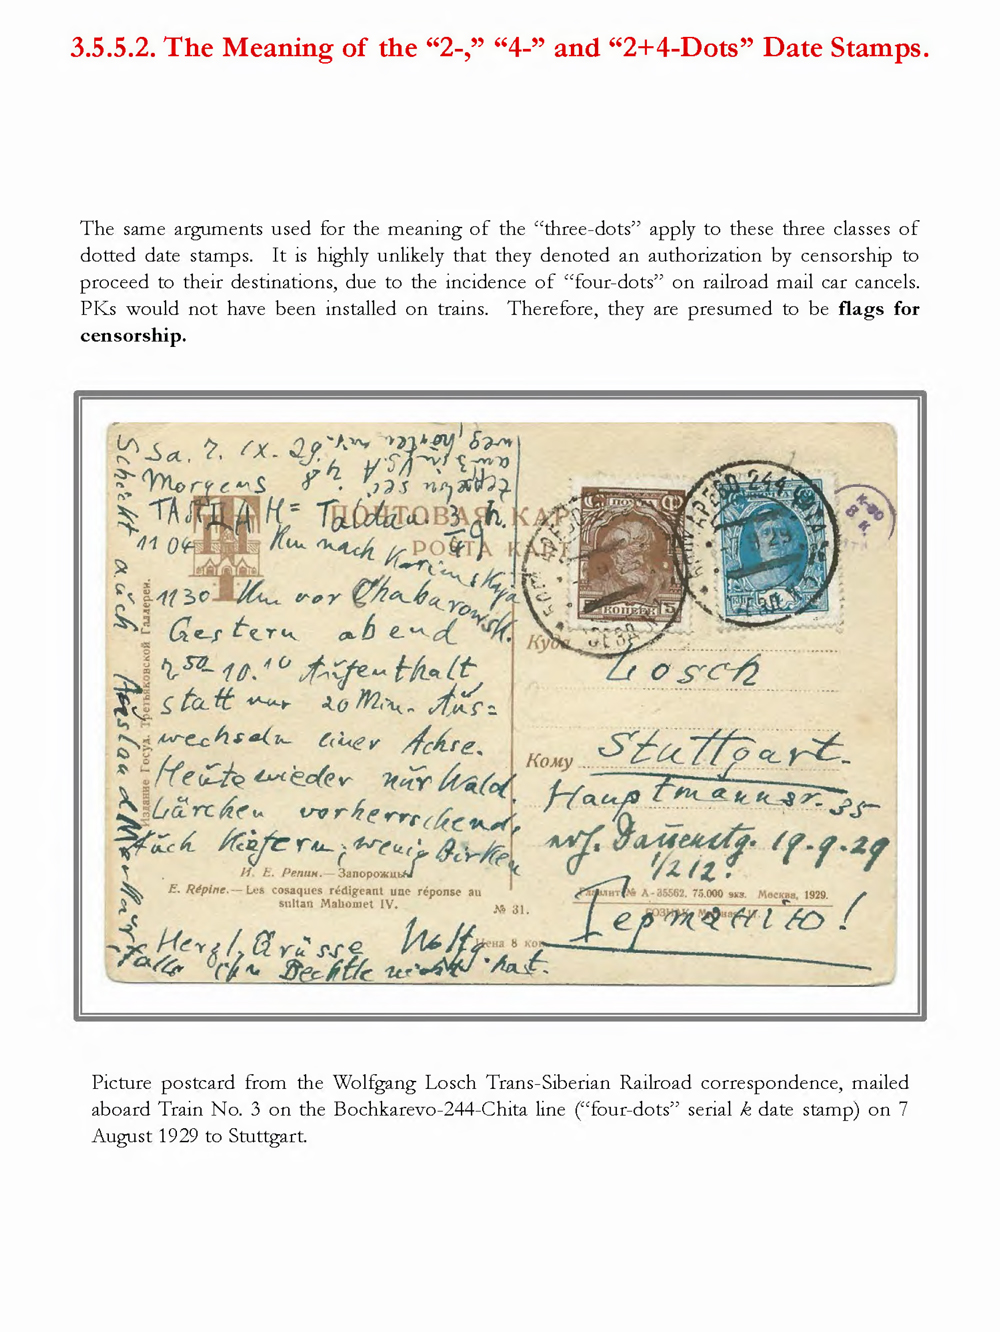 3.5.5.2. The Meaning of the “2-,” “4-” and “2+4-Dots” Date Stamps.
The same arguments used for the meaning of the “three-dots” apply to these three classes of
dotted date stamps. It is highly unlikely that they denoted an authorization by censorship to
proceed to their destinations, due to the incidence of “four-dots” on railroad mail car cancels.
PKs would not have been installed on trains. Therefore, they are presumed to be flags for
censorship.
Sa. 7. IX. 29.
Morgens
1104 Km nach Karimskaja
1130 Km vor Chabarowsk.
Gestern abend
7,50-10.10 Aufenthalt
statt nur 20 Min. Aus=
wechseln einer Achse.
Heute wieder nur Wald.
Lärchen vorherrschend,
Auch Kiefern, wenig Birken
Herzl. Grüsse Wolfg.
falls ihn Bechtle nicht hat.
Schickt auch
ПОЧТОВАЯ КАР
POSTA KAR
Издание Госуд. Третьяковской Галлереи.
И. Е. Репин.—Запорожцы
E. Répine.—Les cosaques rédigeant une réponse au
sultan Mahomet IV.
№ 31.
Цена 8 коп.
ПОЧТА
КОПЕЕК 5
244
Куда
Losch
Кому
Stuttgart.
Hauptmannsr. 35
19.9.29
№ А-35562. 75.000 экз. Москва, 1929.
Германию!
Picture postcard from the Wolfgang Losch Trans-Siberian Railroad correspondence, mailed
aboard Train No. 3 on the Bochkarevo-244-Chita line (“four-dots” serial k date stamp) on 7
August 1929 to Stuttgart.